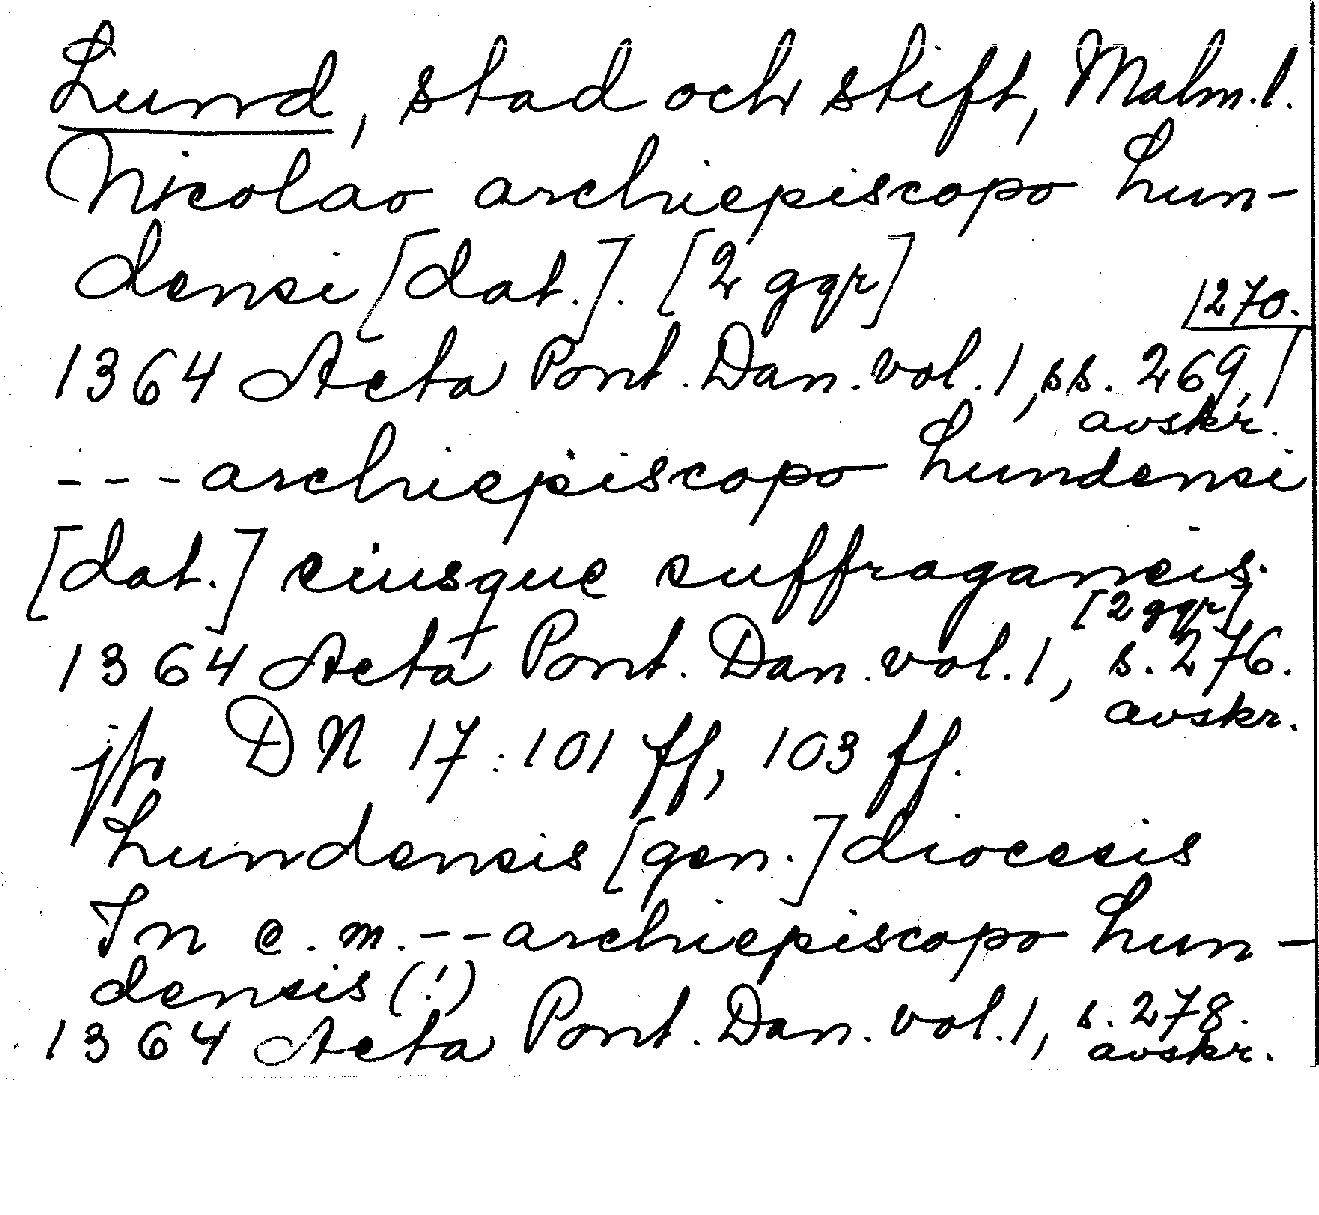 Lund, stad och stift, Malm. l.
Nicolao archiepiscopo Lun-
densi [dat.]. [2 ggr]
1364 Acta Pont. Dan. vol. 1, ss. 269, 270.
avskr.
--- archiepiscopo Lundensi
[dat.] eiusque suffraganeis.
[2 ggr]
1364 Acta Pont. Dan. vol. 1, s. 276.
avskr.
jfr DN 17:101 ff, 103 ff.
Lundensis [gen.] diocesis
In e. m. -- archiepiscopo Lun-
densis (!)
1364 Acta Pont. Dan. vol. 1, s. 278.
avskr.